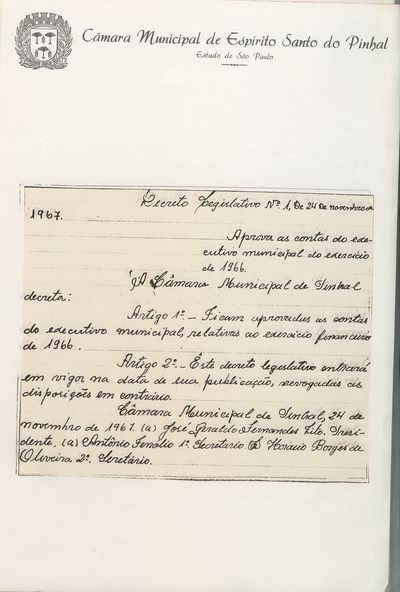 Câmara Municipal de Espírito Santo do Pinhal
Estado de São Paulo
Decreto Legislativo Nº 1, de 24 de novembro de
1967.
Aprova as contas do exe-
cutivo municipal do exercício
de 1966.
A Câmara Municipal de Pinhal
decreta:
Artigo 1º - Ficam aprovadas as contas
do executivo municipal, relativas ao exercício financeiro
de 1966.
Artigo 2º - Este decreto legislativo entrará
em vigor na data de sua publicação, revogadas as
disposições em contrário.
Câmara Municipal de Pinhal, 24 de
novembro de 1967. (a) José Geraldo Fernandes Filo. Presi-
dente, (a) Antônio 1º Secretário Horácio Borges de
Oliveira 2º. Secretário.